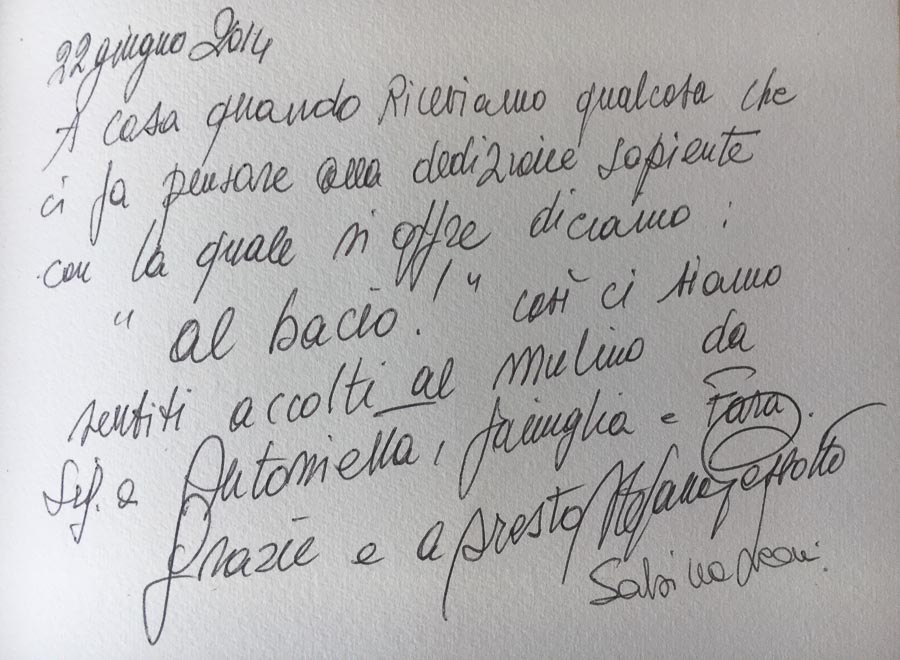 22 giugno 2014
A casa quando Riceviamo qualcosa che
ci fa pensare alla dedizione sapiente
con la quale si offre diciamo :
" al bacio! " così ci siamo
sentiti accolti al mulino da
Sig.a Antoniella, famiglia e Fara.
Grazie e a presto Stefano
Sabina